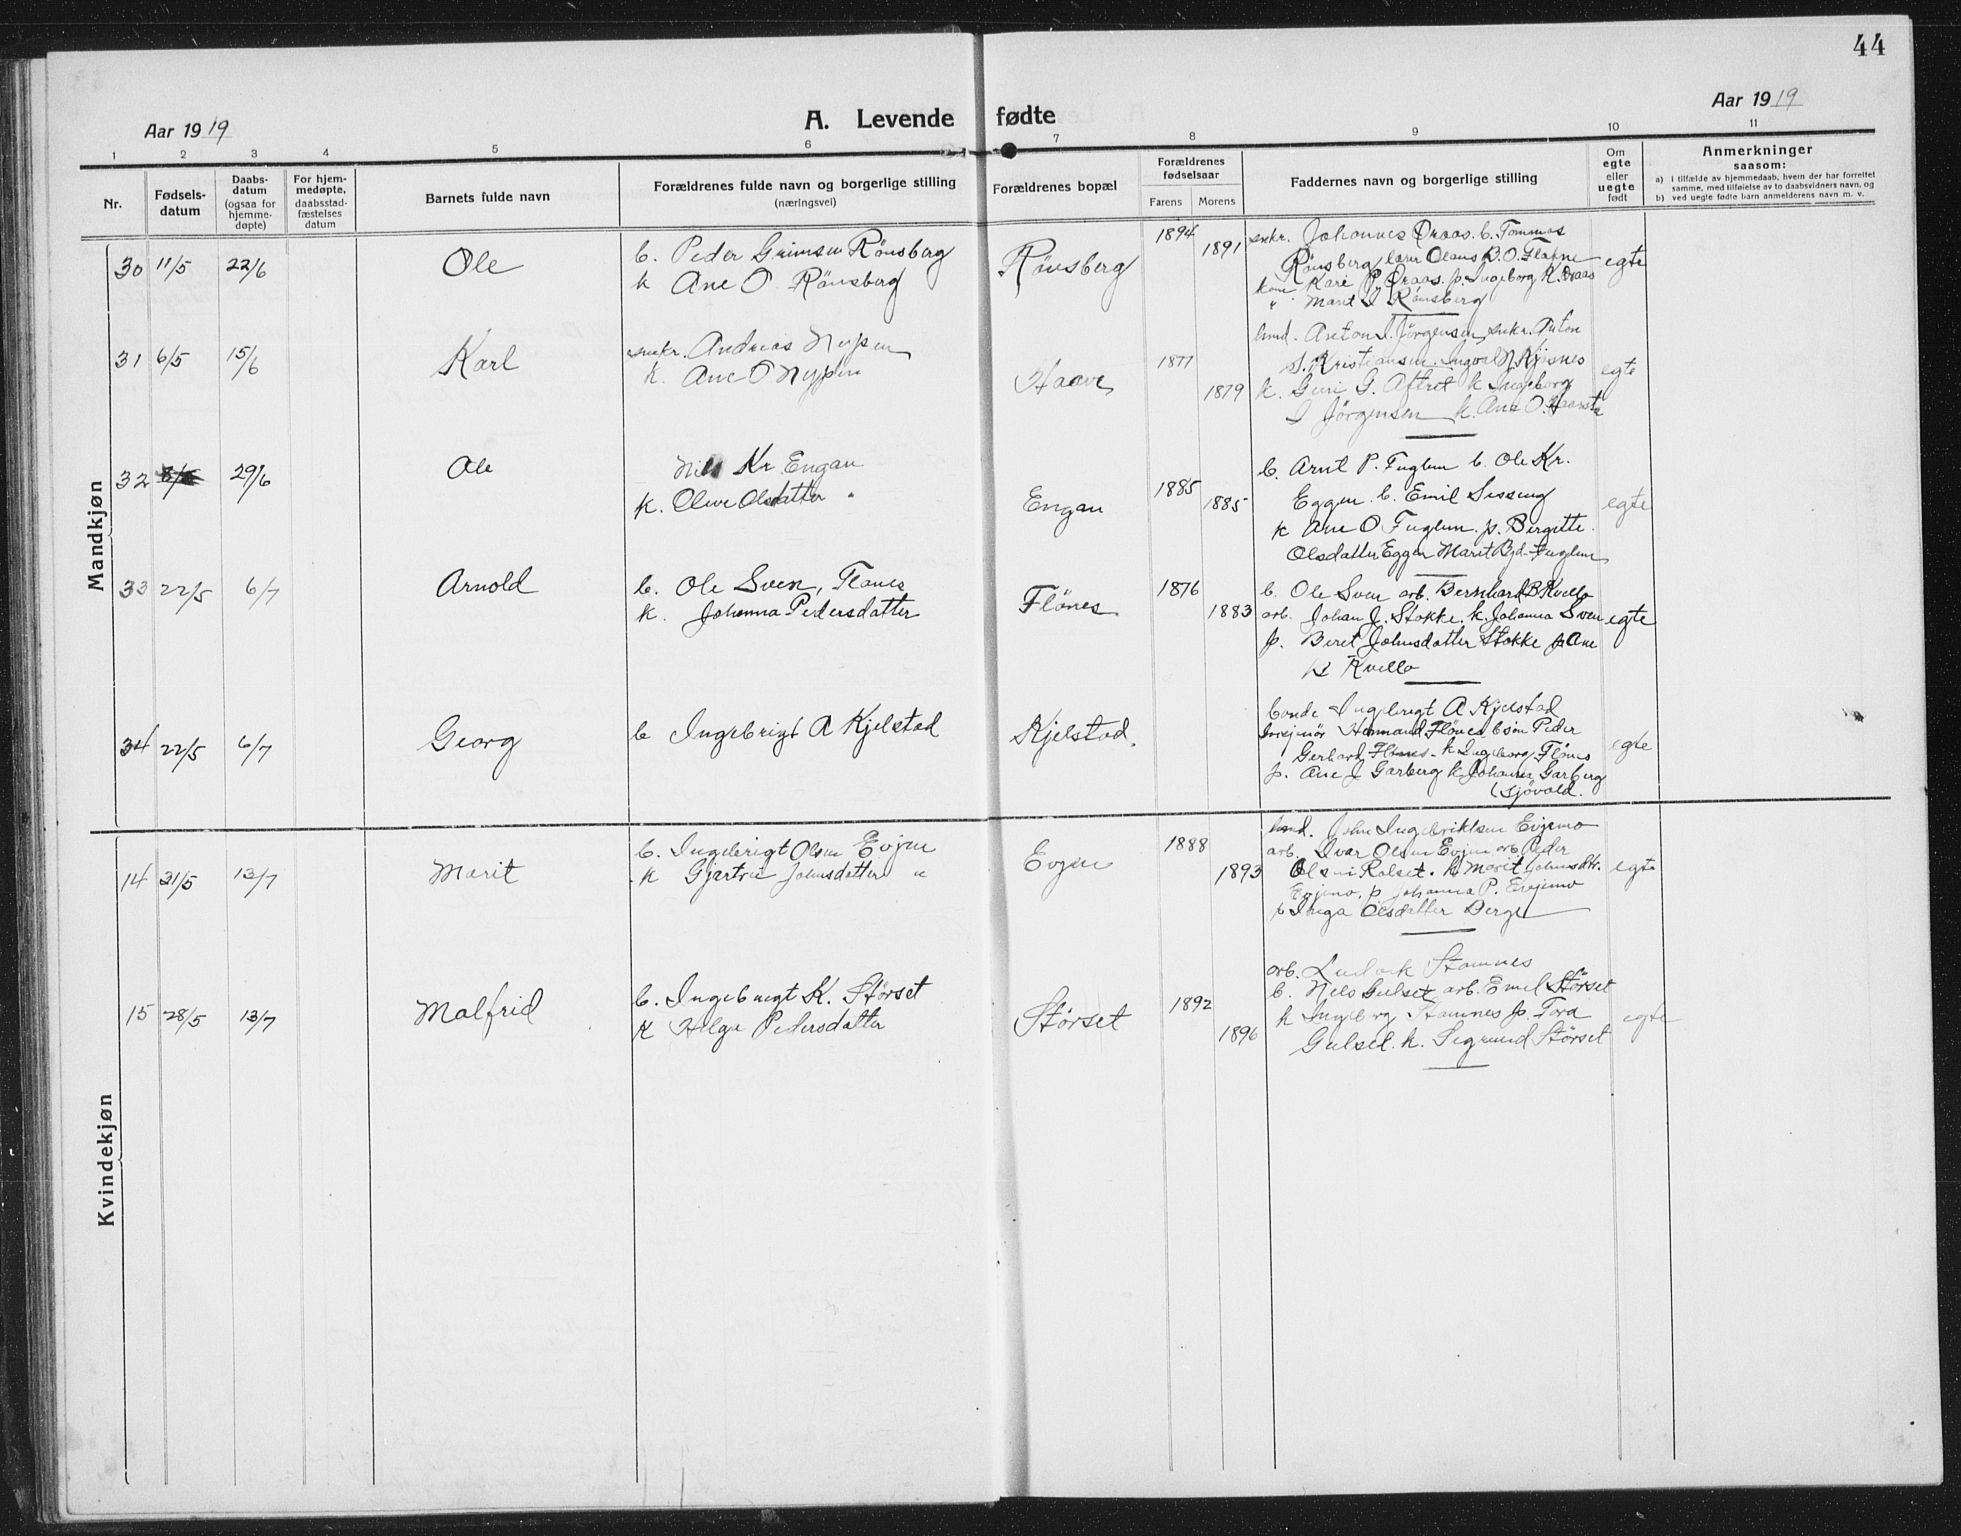 44
Aar 1919
A. Levende fødte
Aar 1919
1 2 3 4 5 6 7 8 9 10 11
Nr.
Fødsels-
datum
Daabs-
datum
(ogsaa for
hjemme-
døpte)
For hjem-
medøpte,
daabsstad-
fæstelses
datum
Barnets fulde navn
Forældrenes fulde navn og borgerlige stilling
(næringsvei)
Forældrenes bopæl
Forældrenes
fødselsaar
Farens Morens
Faddernes navn og borgerlige stilling
Om
egte
eller
uegte
født
Anmerkninger
saasom:
a) i tilfælde av hjemmedaab, hvem der har forrettet
samme, med tilføielse av to daabsvidners navn, og
b) ved uegte fødte barn anmelderens navn m. v.
Mandkjøn
30 11/5 22/6 Ole
b. Peder Grimsen Rönsberg
k Ane O. Rönsberg
Rönsberg
1894
1891
snkr. Johannes Draas. b. Tommas
Rönsberg, lærer Olaus B. O. Flaknes
kone Kari P. Draas. p. Ingeborg K. Draas
" Marit I Rönsberg
egte
31 6/5 15/6 Karl
snekr. Andreas Nypen
k. Ane O Nypen
Haave
1877
1879
hmd. Anton J. Jörgensen snkr. Anton
S. Kristiansen. Ingval N. Kjösnes
k. Guri G. Aftret k Ingeborg
I Jörgensen k. Ane O. Haarsta
egte
32 29/6 Ole
Nils Kr Engan
k. Olive Olsdatter "
Engan
1885
1885
b. Arnt P. Fuglem b. Ole Kr.
Eggen. b. Emil Sesseng
k Ane O Fuglem. p. Bergitte
Olsdatter Eggen Marit Fuglem
egte
33 22/5 6/7 Arnold
b. Ole Sven, Flönes
k. Johanna Pedersdatter
Flönes
1876
1883
b. Ole Sven arb. Bernhard B Kvello
arb. Johan J. Stokke. k. Johanna Sven
p. Beret Johnsdatter Stokke p. Ane
Kvello
egte
34 22/5 6/7 Georg
b Ingebrigt A Kjelstad
Kjelstad.
bonde Ingebrigt A Kjelstad
Insjenør Hamand Flönes b sön Peder
Gerhard Flönes - k Ingeborg Flönes
p. Ane J Garberg k Johanna Garberg
(Sjövold.
egte
Kvindekjøn
14 31/5 13/7 Marit
b. Ingebrigt Olsen Evjen
k Gjertru Johnsdatter "
Evjen
1888
1893
hmd. John Ingebriktsen Evjemo
arb. Ivar Olsen Evjen arb Peder
Olsen Rolset. k Marit Johnsdtr.
Evjemo, p. Johanna P. Evjemo
p Inga Olsdatter Berge
egte
15 28/5 13/7 Malfrid
b. Ingebrigt K. Störset
k Helga Pedersdatter
Störset
1892
1896
arb. Ludvik Stamnes
b. Nels Gulset arb. Emel Störset
k Ingeborg Stamnes p. Tora
Gulset. k. Segrund Störset
egte